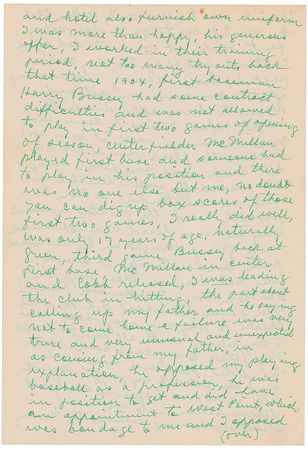 and hotel also furnish own uniform
I was more than happy, his generous
offer, I worked in their training
period, not too many try outs back
that time 1904, first baseman
Harry Bussey had some contract
difficulties and was not allowed
to play in first two games of opening
of season, centerfielder McMillan
played first base and someone had
to play in his position and there
was no one else but me, no doubt
you can dig up box scores of those
first two games, I really did well,
was only 17 years of age, naturally
green, third game, Bussey back at
first base McMillan in center
and Cobb released, I was leading
the club in hitting, the part about
calling up my father and he saying
not to come home a failure was very
true and very unusual and unexpected
as coming from my father, in
explanation, he opposed my playing
baseball as a profession, he was
in position to get and did have
an appointment to West Point, which
was bondage to me and I opposed
(over)